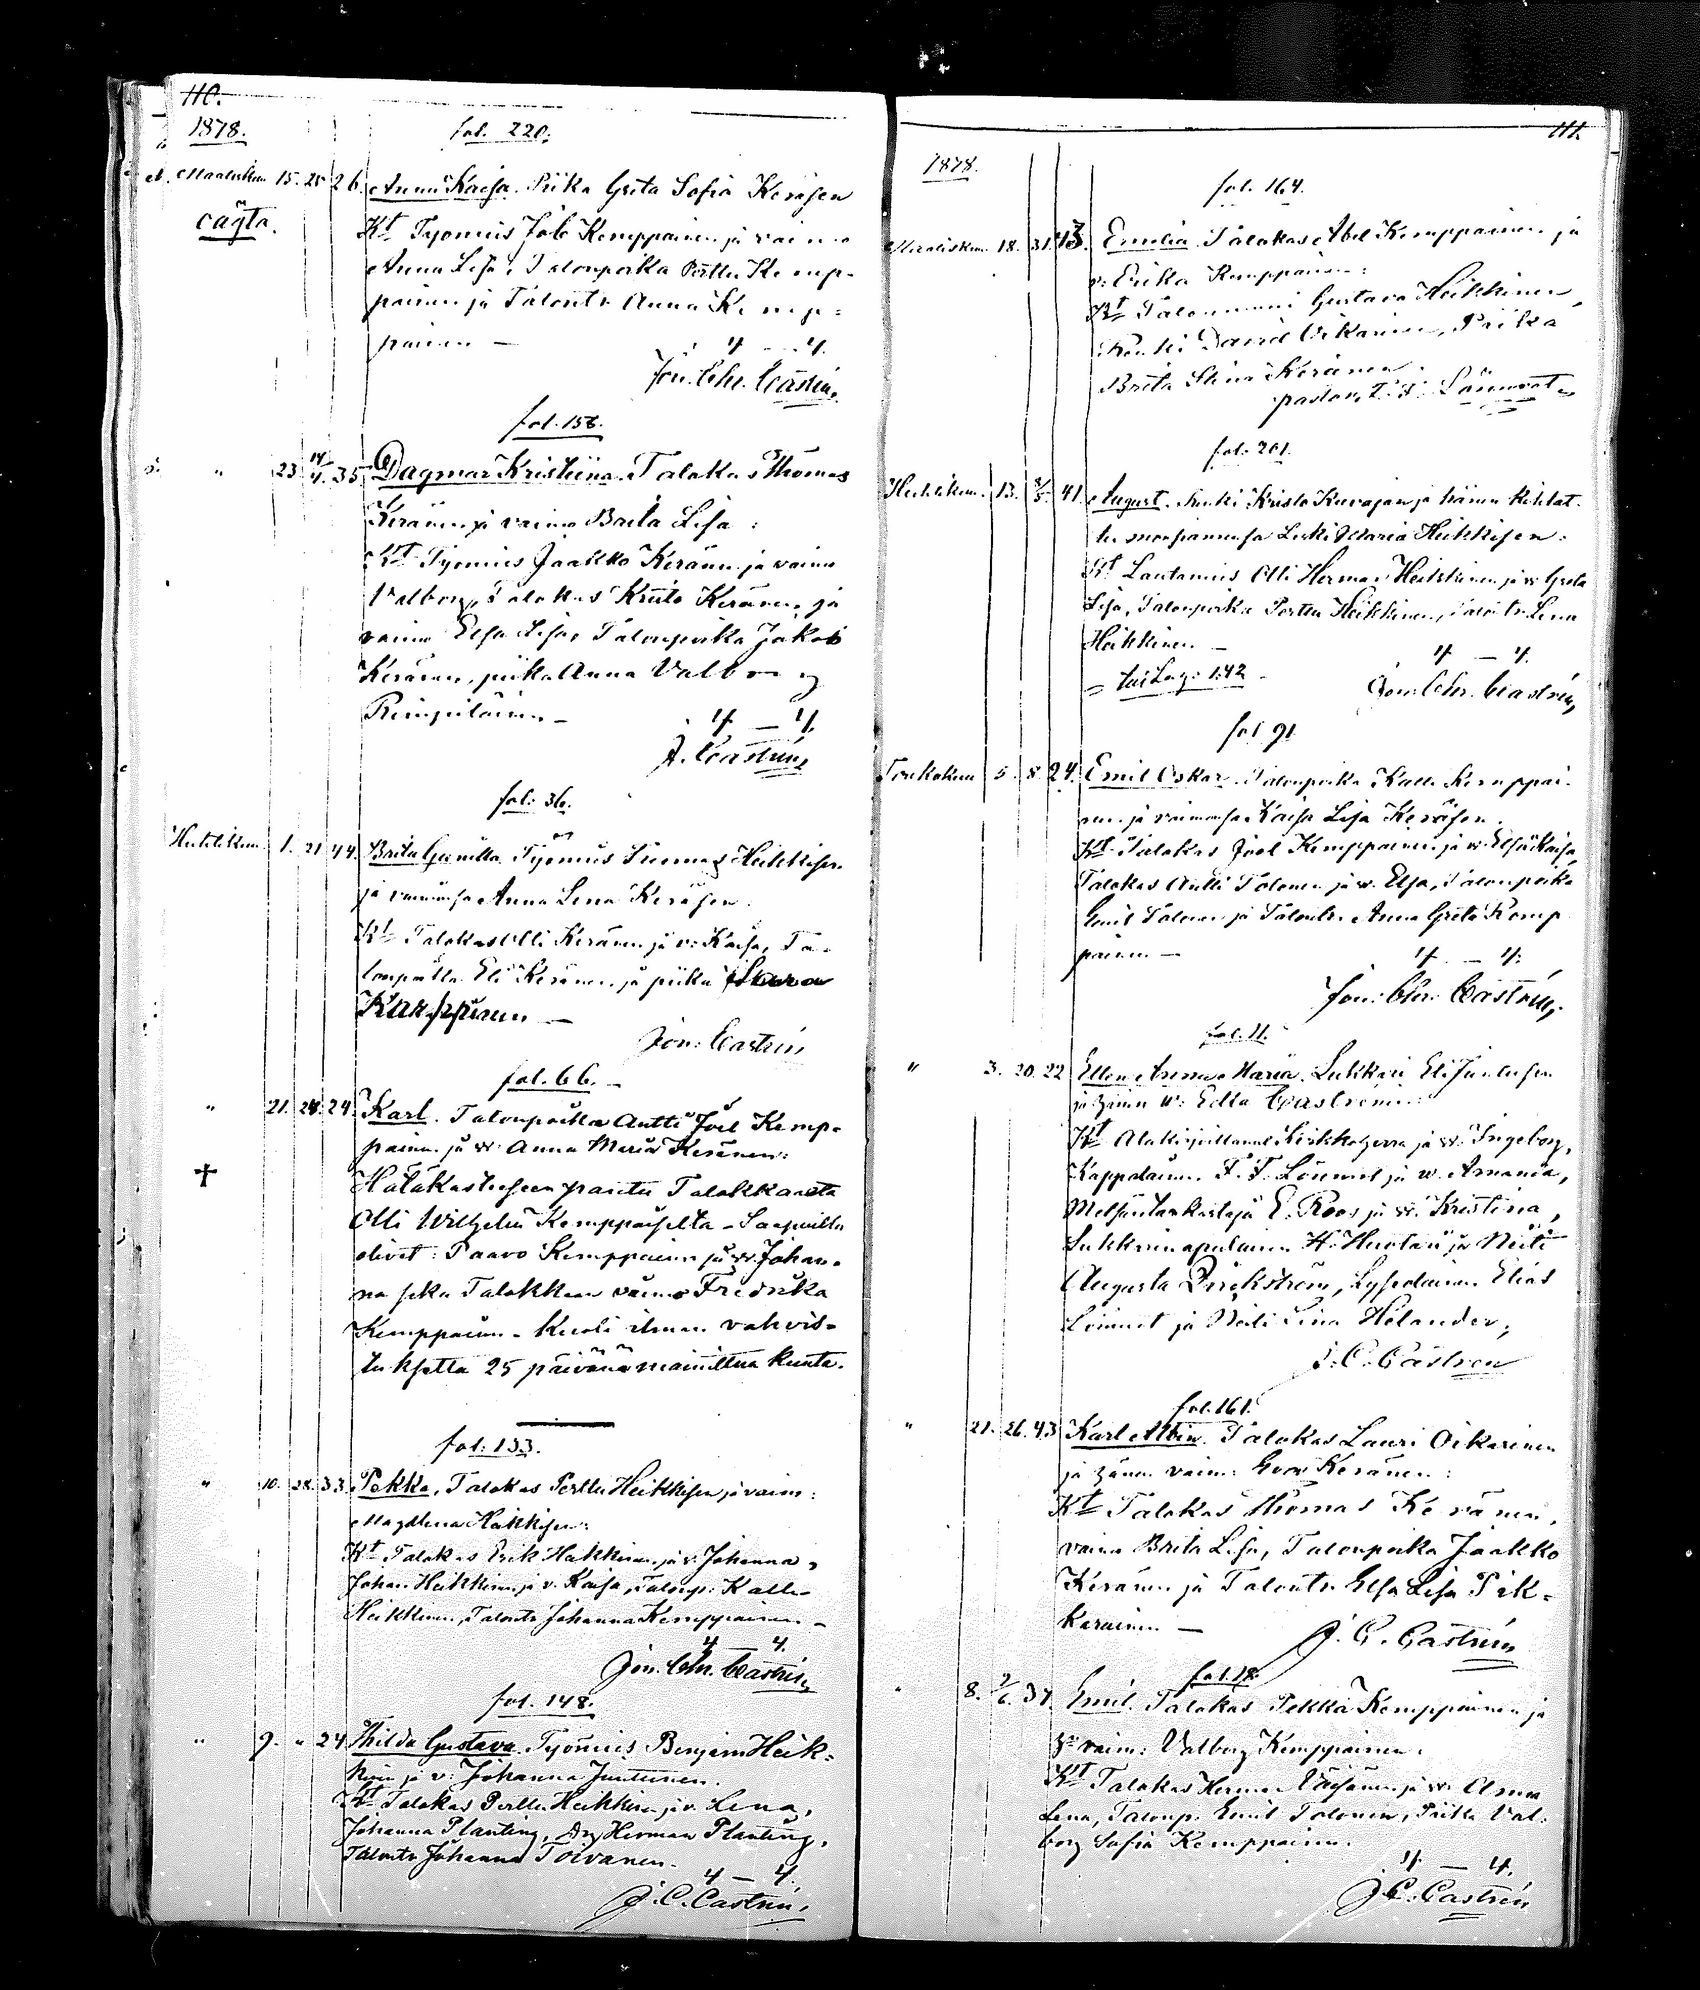 110.
1878.
fol. 220.
Maaliskuu 15. 25 26. Anna Kaisa. Piika Greta Sofia Keräsen
cägta.
Kt. Työmies Job Kemppainen ja vaimo
Anna Lisa, Talonpoika Perttu Kemp-
painen ja Talontr Anna Kemp-
painen —
4 — 4.
Jon. Chr. Castrén,
fol. 158.
" 23 14/4. 35 Dagmar Kristiina. Talokas Thomas
Keränen ja vaimo Brita Lisa:
Kt. Työmies Jaakko Keränen ja vaimo
Valborg, Talokas Kristo Keränen ja
vaimo Elsa Lisa, Talonpoika Jakob
Keränen, piika Anna Valborg
Rimpiläinen —
4 — 4.
J. Castrén,
fol: 36.
Huhtikuu 1. 21 44. Brita Gunilla. Työmies Tuomas Heikkisen
ja vaimonsa Anna Lena Keräsen.
Kt. Talokas Olli Keränen ja v: Kaisa, Ta-
lonpoika Eli Keränen ja piika
Karppinen —
Jon: Castrén
fol. 66. —
" 21. 24. 24. Karl. Talonpoika Antti Joel Kemp-
painen ja w: Anna Maria Keränen:
Hätäkasteheen pantu Talokkaasta
Olli Wilhelm Kemppaiselta - Saapuvilla
olivat: Paavo Kemppainen ja w. Johan-
na seka Talokkaan vaimo Fredrika
Kemppainen - Kuoli ilman vahvis-
tuksetta 25 päivänä mainittua kuuta.
fol: 133.
" 10. 28. 33. Pekka, Talokas Perttu Heikkisen ja vaim:
Magdlena Heikkisen:
Kt. Talokas Erik Heikkinen ja v: Johanna,
Johan Heikkinen ja v. Kaisa, Talonp: Kalle
Heikkinen, Talontr Johanna Kemppainen —
4 — 4.
Jon. Chr. Castrén,
fol. 148.
" 9. " 24 Hilda Gustava. Työmies Benjam Heik-
kinen ja v: Johanna Juntunen.
Kt. Talokas Perttu Heikkinen ja v. Lena,
Johanna Planting, Herman Planting,
Talontr Johanna Toivanen.
4 — 4.
J. C. Castrén,
111.
1878.
fol. 164.
Maaliskuu 18. 31. 43. Emilia. Talokas Abel Kemppainen ja
v: Erika Kemppainen:
Kt. Gustava Heikkinen,
Renki David Oikarinen, Piika
Brita Stina Keränen.
pastori F. F. Lönnrot
fol: 201.
Huhtikuu. 13. 3/5. 41. August. Renki Kristo Kuvajan ja hänen kihlat-
tu morsiamensa Leski Maria Heikkisen:
Kt. Lautamies Olli Herman Heikkinen ja w Greta
Lisa, Talonpoika Perttu Heikkinen, Talontr Lena
Heikkinen —
4 — 4.
Jon: Chr. Castrén,
fol 91
Toukokuu 5. 8. 24. Emil Oskar. Talonpoika Kalle Kemppai-
nen ja vaimonsa Kaisa Lisa Keräsen.
Kt. Talokas Joel Kemppainen ja w. Elsa Kaisa,
Talokas Antti Tolonen ja w. Elsa, Talonpoika
Emil Tolonen ja Talontr. Anna Greta Kemp
painen —
4 — 4.
Jon: Chr: Castrén,
fol. 11.
" 3. 20. 22 Ellen Anna Maria. Lukkari Eli Juntusen
ja hänen w: Edla Castrénin:
Kt. ja w. Ingeborg,
Kappalainen F. F. Lönnrot ja w. Amanda,
Metsäntarkastaja E. Roos ja w. Kristina,
Lukkarinapulainen H. Huotari ja Neiti
Augusta Lyseolainen Elias
Lönnrot ja Neiti Lina Helander,
J. C. Castrén
fol. 161.
" 21. 26. 43 Karl Albin. Talokas Lauri Oikarinen
ja hänen vaim: Eva Keränen:
Kt. Talokas Thomas Keränen,
vaimo Brita Lisa, Talonpoika Jaakko
Keränen ja Talontr. Elsa Lisa Pik-
karainen —
J. C. Castrén
fol. 18.
" 8. 2/6. 37. Emil. Talokas Pekka Kemppainen ja
hn vaim: Valborg Kemppainen.
Kt. Talokas Herman Väisänen ja w: Anna
Lena, Talonp. Emil Tolonen, Piika Val-
borg Sofia Kemppainen.
4 — 4.
J. C. Castrén